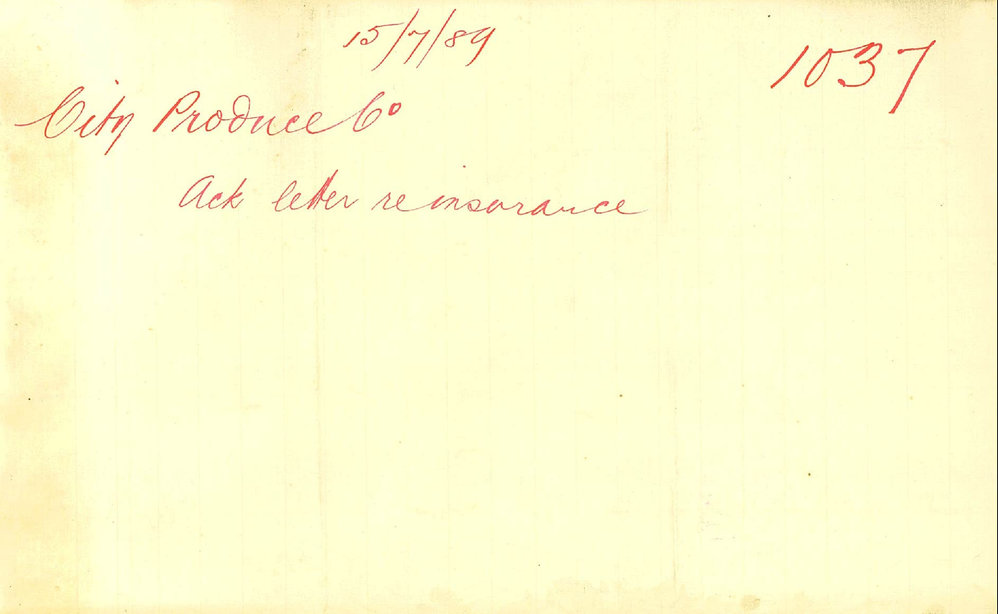 15/7/89
1037
City Produce Co
Ack letter re insurance